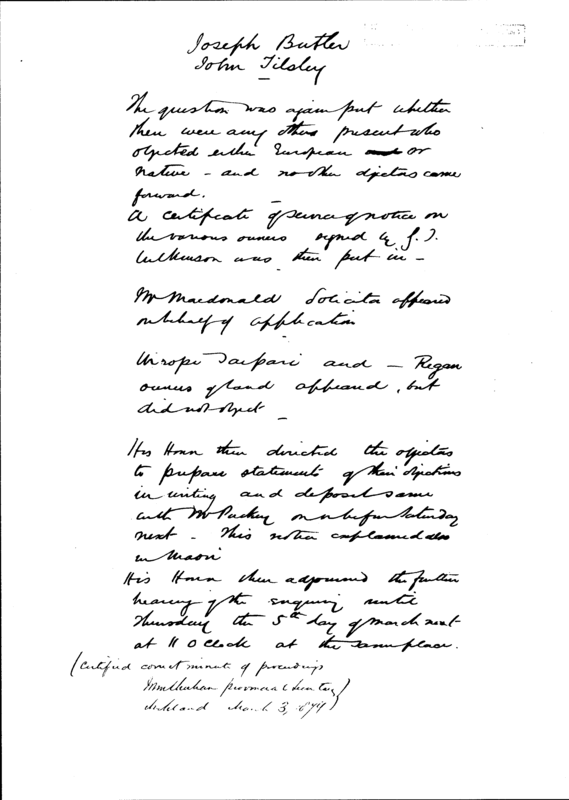 Joseph Butler
John Tilsley
The question was again put whether
there were any others present who
objected either European or
native - and no other objectors came
forward.
A certificate of service of notice on
the various owners signed by J. T.
Wilkinson was then put in -
Mr Macdonald Solicitor appeared
on behalf of application
Wirope Taipari and - Regan
owners of land appeared, but
did not object -
His Honor then directed the objectors
to prepare statements of their objections
in writing and deposit same
with Mr Puckey on or before Saturday
next - This notice explained also
in Maori
His Honor then adjourned the further
hearing of the enquiry until
Thursday the 5th day of March next
at 11 O'Clock at the same place.
(Certified correct minute of proceedings
Auckland March 3, 1874)